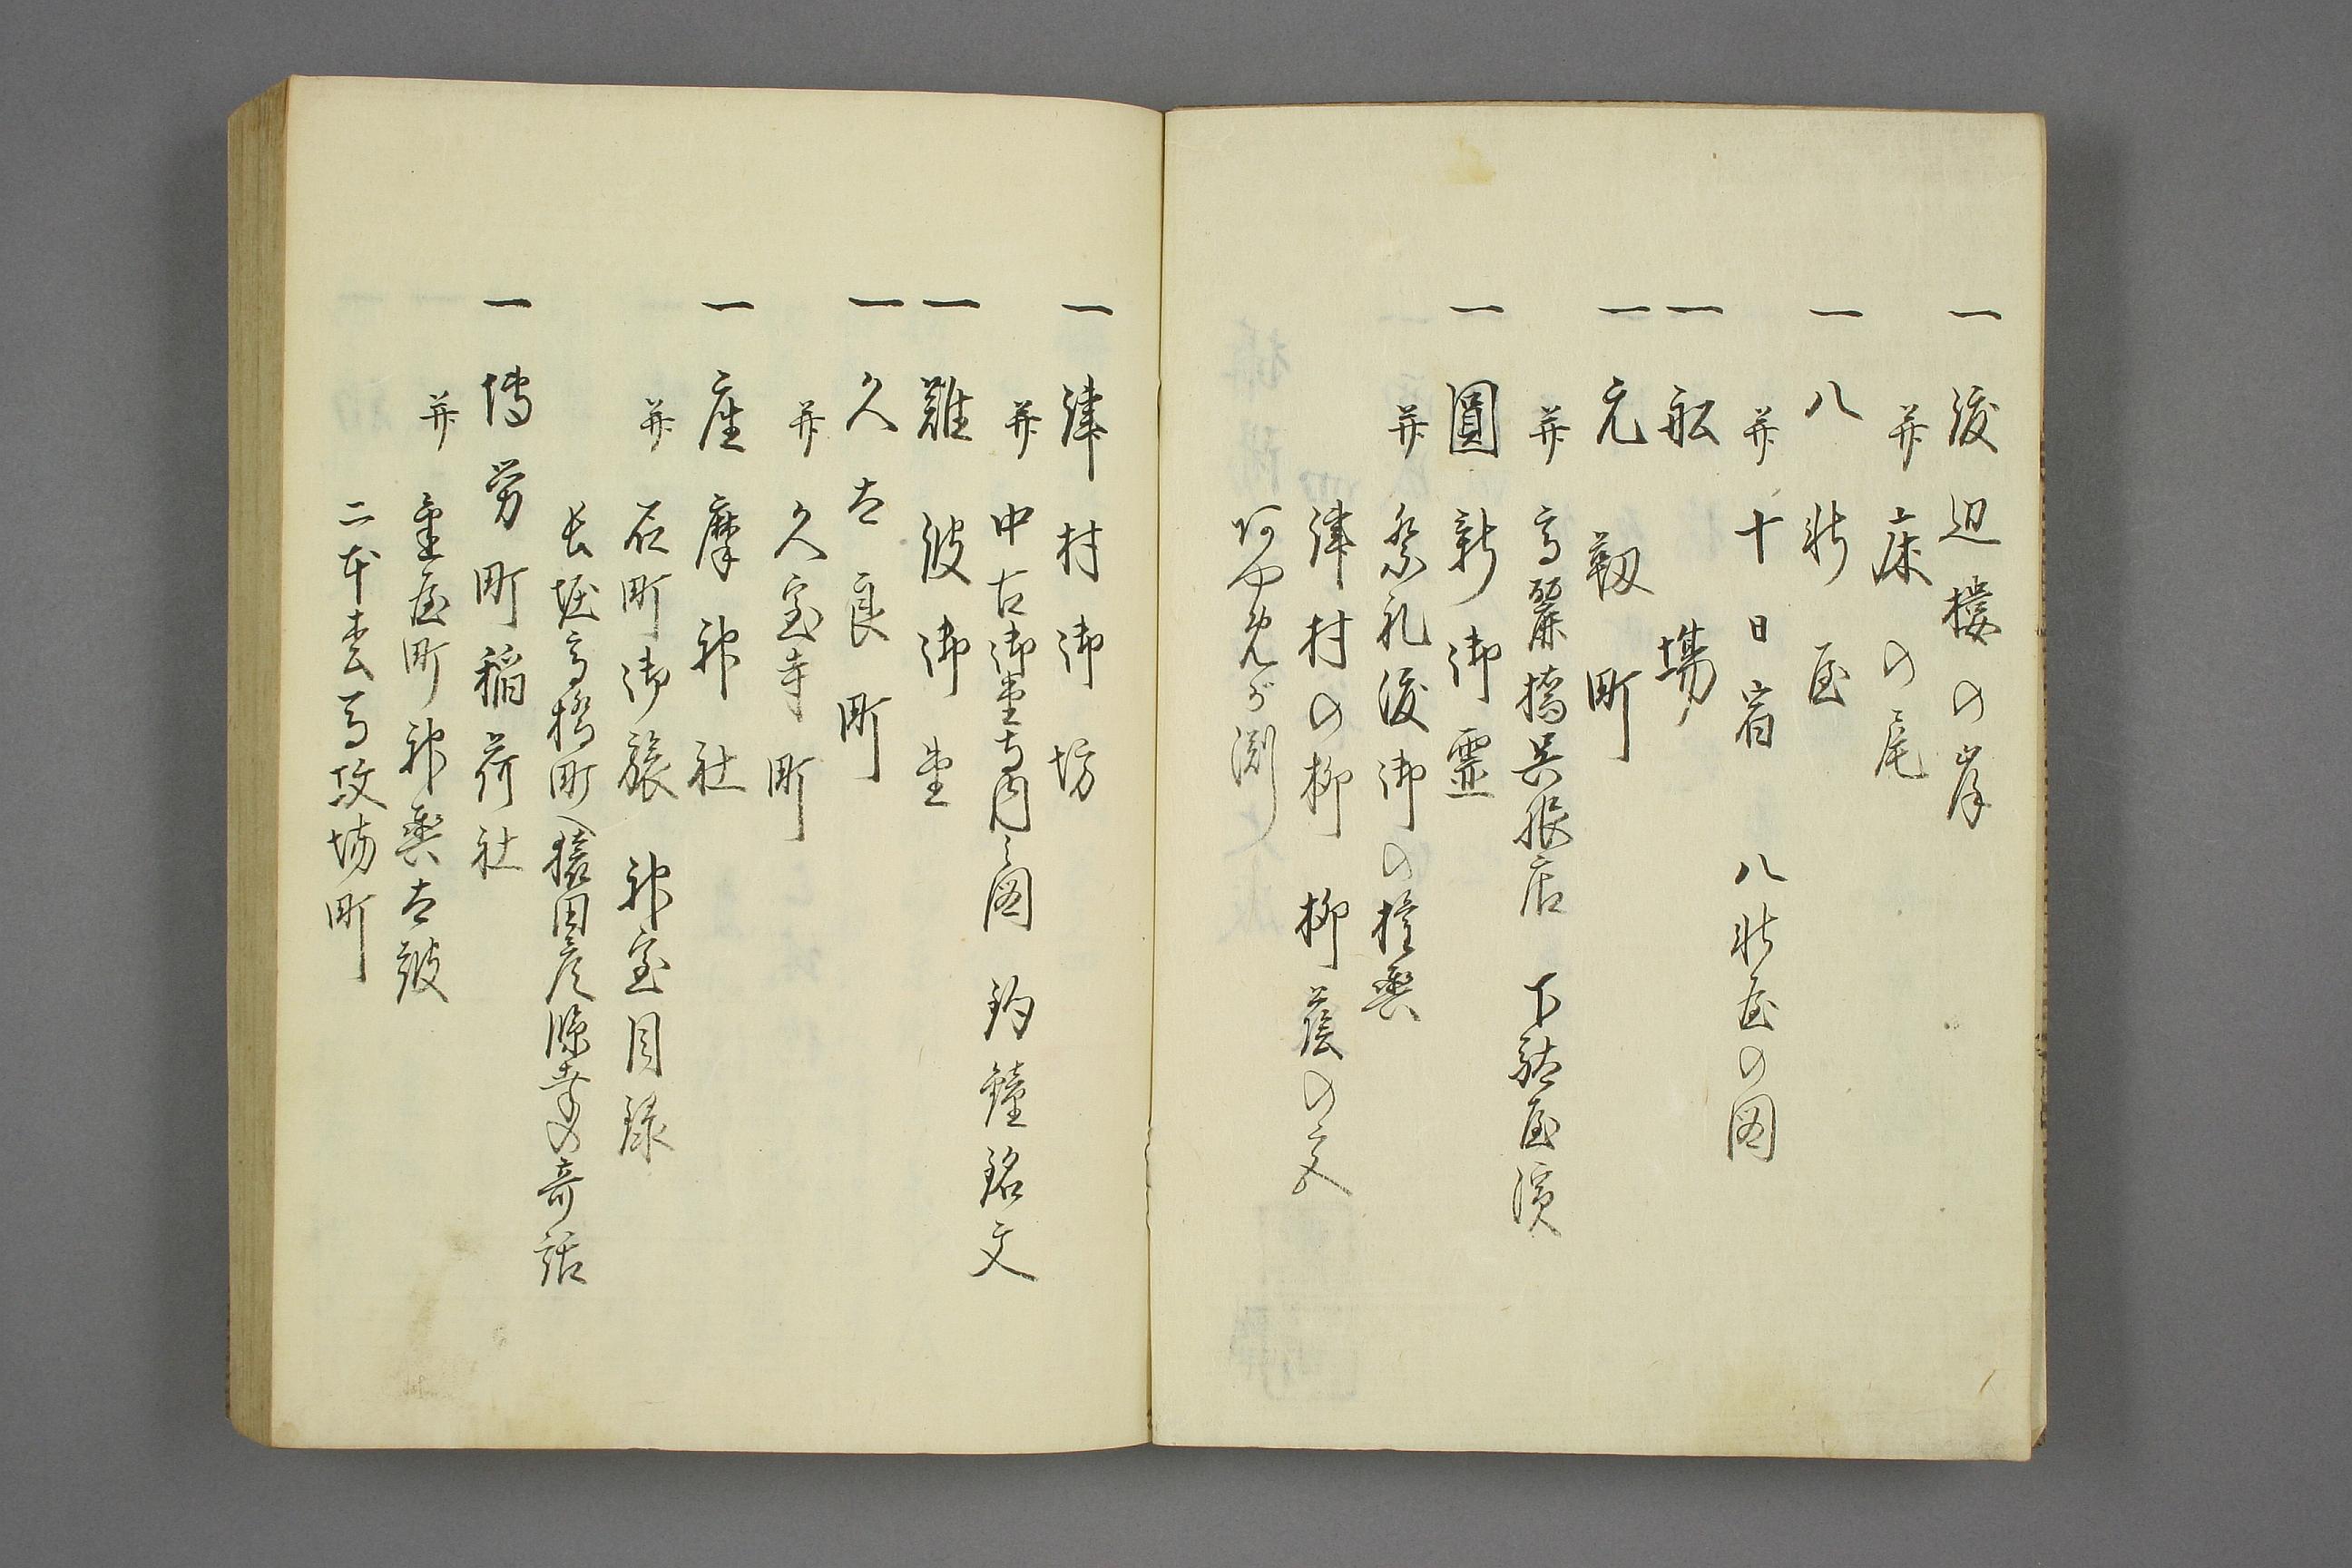 一 渡辺楼の岸
并 床の尾
一 八軒屋
并 十日宿 八軒屋の図
一 船場
一 元靱町
并 高麗橋呉服店 下駄屋濱
一 圓新御霊
并 祭礼渡御の権輿
津村の柳 柳蔭の文
一 津村御坊
并 中古御堂寺内之図 釣鐘銘文
一 難波御堂
一 久太良町
并 久宝寺町
一 座摩神社
并 石町御旅 神宝目録
長堀高橋町へ猿田彦臨幸の奇話
一 博労町稲荷社
并 重屋町神輿太皷
二本松馬坟場町